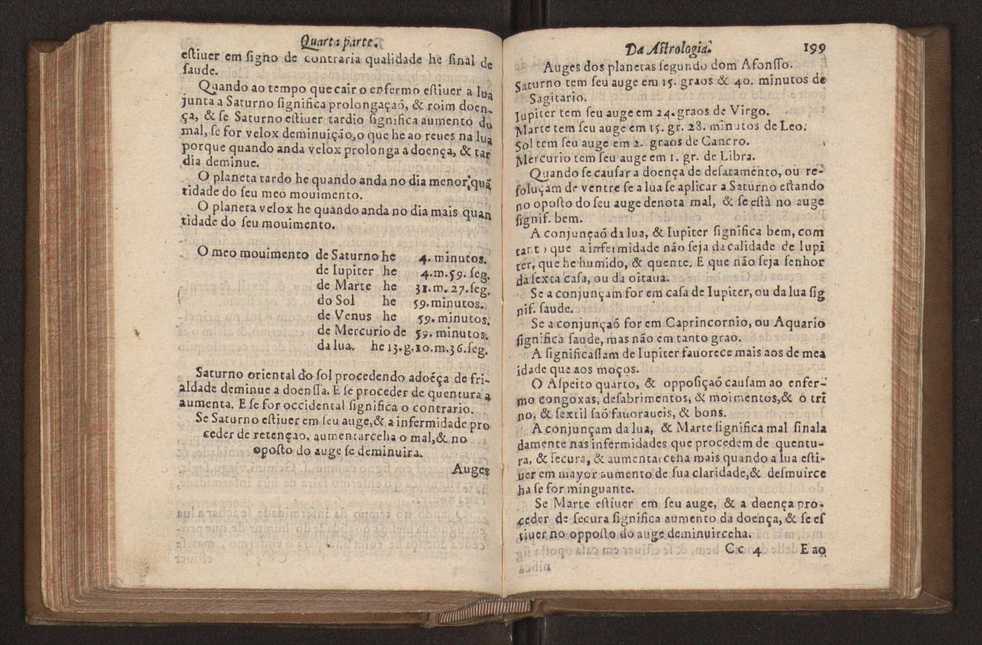 Quarta parte.
estiuer em signo de contraria qualidade he sinal de
saude.
Quando ao tempo que cair o enfermo estiuer a lua
junta a Saturno significa prolongaçaõ, & roim doen-
ça, & se Saturno estiuer tardio significa aumento do
mal, se for velox deminuição, o que he ao reues na lua
porque quando anda velox prolonga a doença, & tar
dia deminue.
O planeta tardo he quando anda no dia menor quã
tidade do seu meo mouimento.
O planeta velox he quando anda no dia mais quan
tidade do seu mouimento.
O meo mouimento de Saturno he 4. minutos.
de Iupiter he 4. m. 59. seg.
de Marte he 31. m. 27. seg.
do Sol he 59. minutos.
de Venus he 59. minutos.
de Mercurio de 59. minutos.
da lua. he 13. g. 10. m. 36. seg.
Saturno oriental do sol procedendo adoẽça de fri-
aldade deminue a doenssa. E se proceder de quentura a
aumenta. E se for occidental significa o contrario.
Se Saturno estiuer em seu auge, & a infermidade pro
ceder de retençao, aumentarceha o mal, & no
oposto do auge se deminuira.
Auges
Da Astrologia. 199
Auges dos planetas segundo dom Afonsso.
Saturno tem seu auge em 15. graos & 40. minutos de
Sagitario.
Iupiter tem seu auge em 24. graos de Virgo.
Marte tem seu auge em 15. gr. 28. minutos de Leo.
Sol tem seu auge em 2. graos de Cancro.
Mercurio tem seu auge em 1. gr. de Libra.
Quando se causar a doença de desatamẽnto, ou re-
soluçam de ventre se a lua se aplicar a Saturno estando
no oposto do seu auge denota mal, & se està no auge
signif. bem.
A conjunçaõ da lua, & Iupiter significa bem, com
tanto que a infermidade não seja da calidade de Iupi
ter, que he humido, & quente. E que não seja senhor
da sexta casa, ou da oitaua.
Se a conjunçam for em casa de Iupiter, ou da lua sig
nif. saude.
Se a conjunçaõ for em Caprincornio, ou Aquario
significa saude, mas não em tanto grao.
A significassam de Iupiter fauorece mais aos de mea
idade que aos moços.
O Aspeito quarto, & opposiçaõ causam ao enfer-
mo congoxas, desabrimentos, & moimentos, & o tri
no, & sextil saõ fauoraueis, & bons.
A conjunçam da lua, & Marte significa mal sinala
damente nas infermidades que procedem de quentu-
ra, & secura, & aumentarceha mais quando a lua esti-
uer em mayor aumento de sua claridade, & desmuirce
ha se for minguante.
Se Marte estiuer em seu auge, & a doença pro-
ceder de secura significa aumento da doença, & se es
tiuer no opposto do auge deminuirceha.
Cc 4 E ao